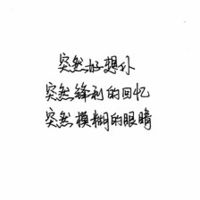 突然好想你
突然锋利的回忆
突然模糊的眼睛